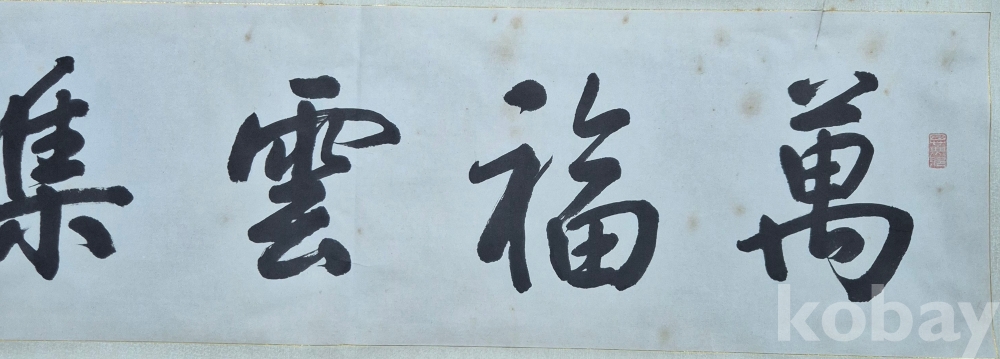 萬福雲集
kobay